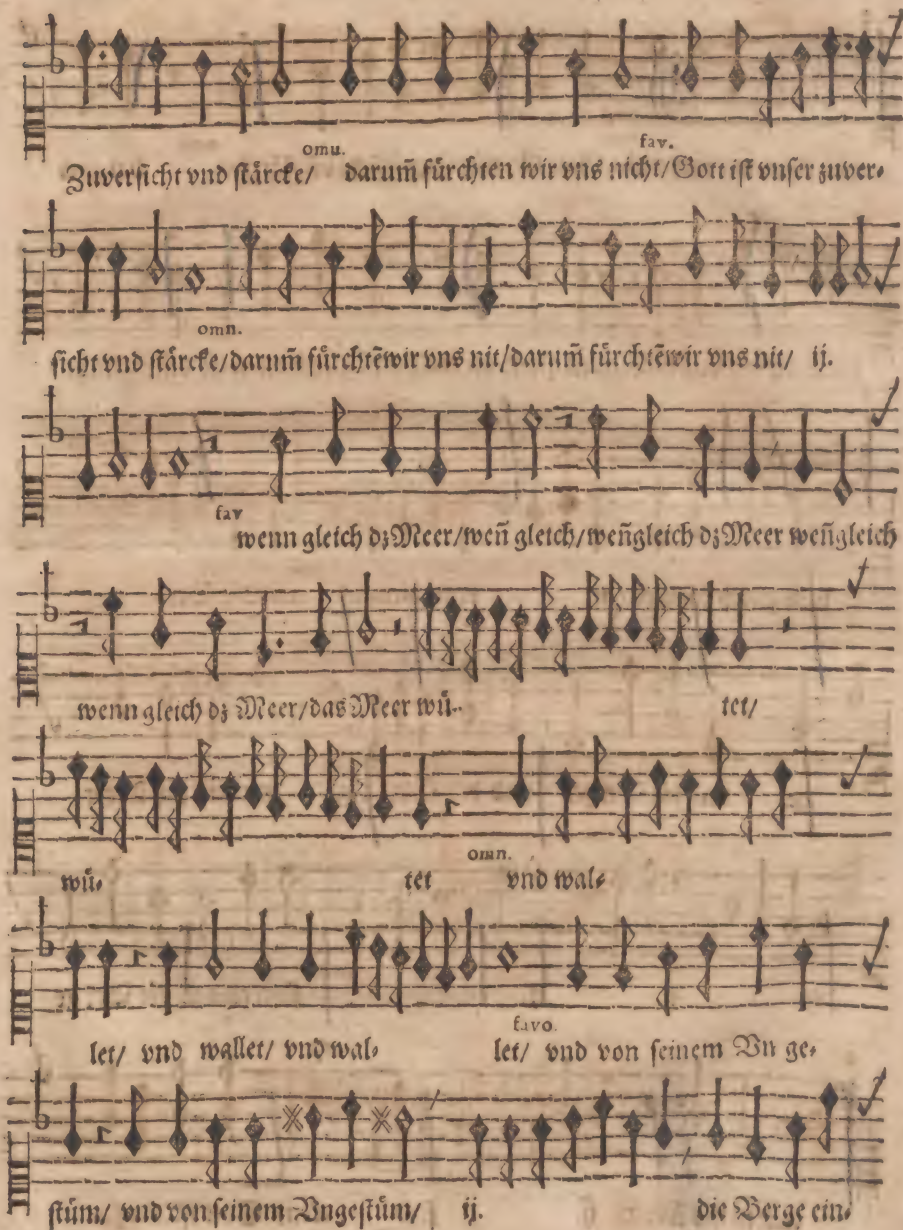 omu. fav.
Zuversicht vnd stärcke/ darum̃ fürchten wir vns nicht/Gott ist vnser zuver⸗
omn.
sicht vnd stärcke/darum̃ fürchtẽwir vns nit/darum̃ fürchtẽwir vns nit/ ij.
fav
wenn gleich dz Meer/weñ gleich/weñgleich dz Meer weñgleich
wenn gleich dz Meer/das Meer wü⸗ tet/
omn.
wü⸗ tet vnd wal⸗
favo.
let/ vnd wallet/ vnd wal⸗ let/ vnd von seinem Vn ge⸗
stüm/ vnd von seinem Vngestüm/ ij. die Berge ein⸗